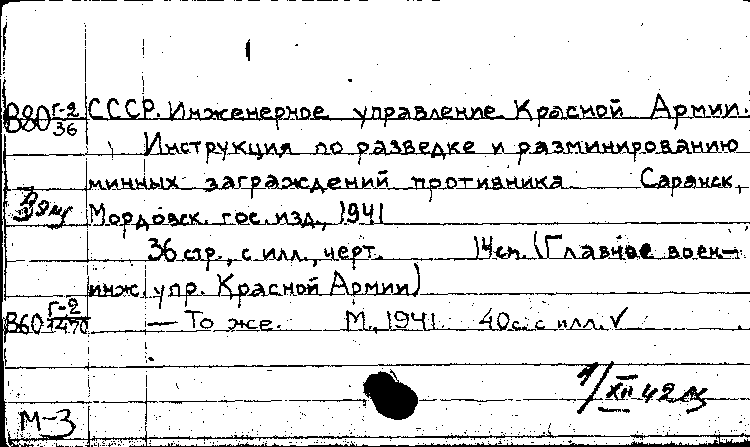 В80 Г-2/36 СССР. Инженерное управление Красной Армии.
Инструкция по разведке и разминированию
минных заграждений противника Саранск,
Мордовск. гос. изд., 1941
36 стр., с илл., черт. 14см. (Главное воен-
инж. упр. Красной Армии)
В60 Г-2/1470 — То же. М., 1941. 40с. с илл. √
/XII 42
М-3